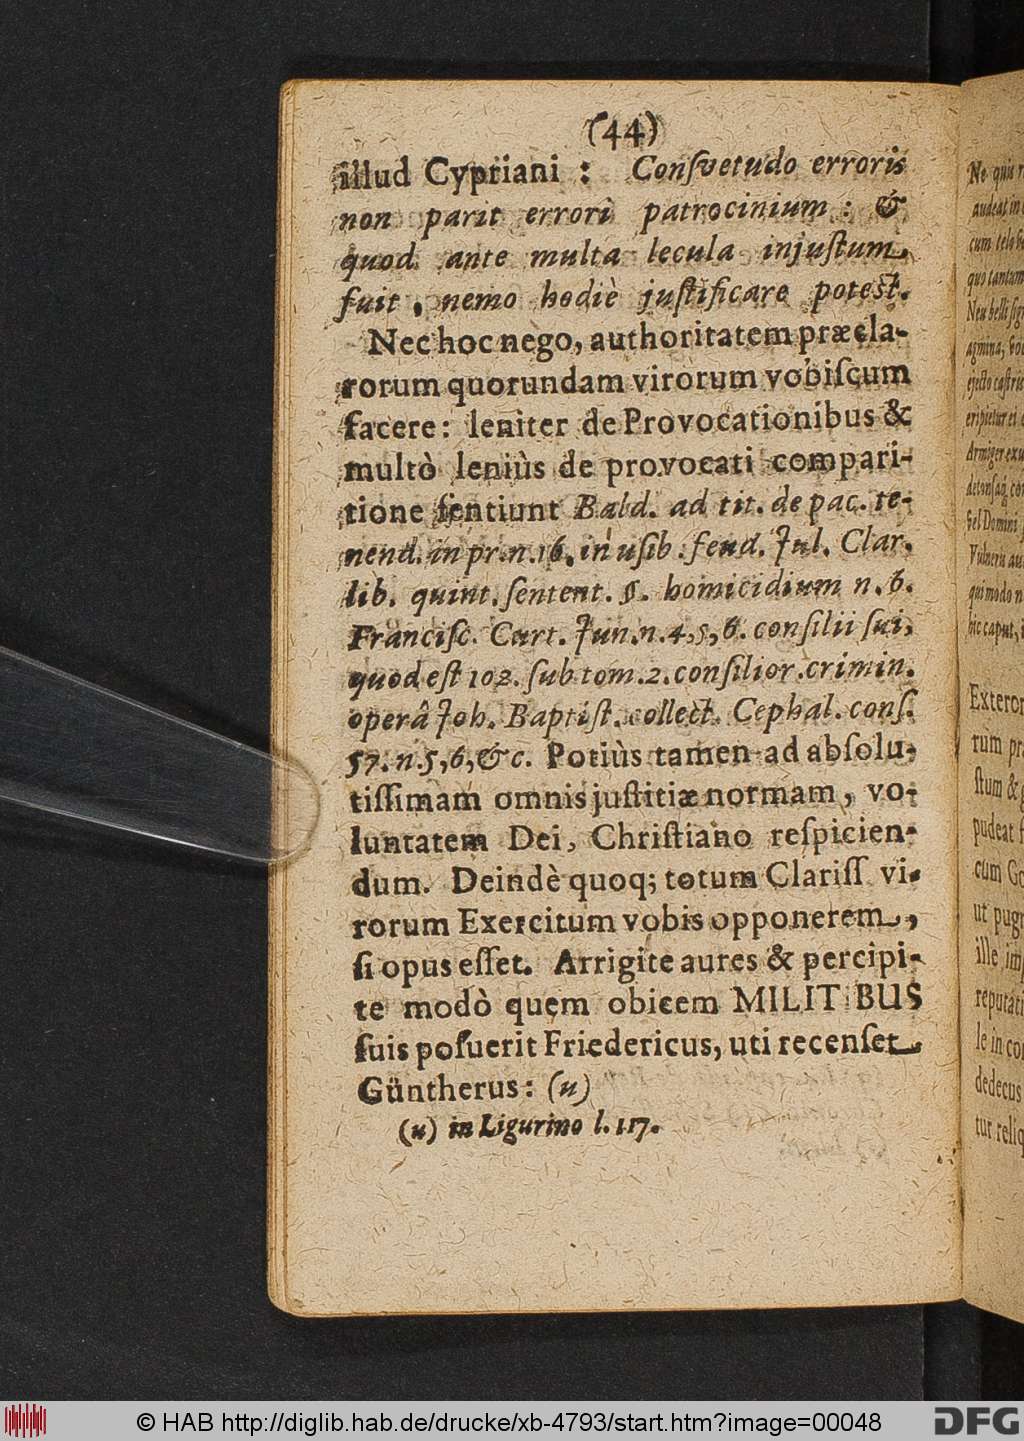 (44)
illud Cypriani : Conſvetudo erroris
non parit errori patrocinium : &
quod ante multa ſecula injuſtum
fuit, nemo hodiè juſtificare poteſt.
Nec hoc nego, authoritatem præcla-
rorum quorundam virorum vobiſcum
facere: leniter de Provocationibus &
multò leniùs de provocati compari-
tione ſentiunt Bald. ad tit. de pac. te-
nend. in pr. n. 16. in uſib. feud. Jul. Clar.
lib. quint. ſentent. §. homicidium n. 6.
Franciſc. Curt. Jun. n. 4, 5, 6. conſilii ſui,
quod eſt 102. ſub tom. 2. conſilior. crimin.
operâ Joh. Baptiſt. collect. Cephal. conſ.
57. n. 5, 6, &c. Potiùs tamen ad abſolu-
tiſſimam omnis juſtitiæ normam, vo-
luntatem Dei, Chriſtiano reſpicien-
dum. Deindè quoq; totum Clariſſ vi-
rorum Exercitum vobis opponerem,
ſi opus eſſet. Arrigite aures & percipi-
te modò quem obicem MILITIBUS
ſuis poſuerit Friedericus, uti recenſet
Güntherus: (u)
(u) in Ligurino l. 117.
Ne quis
audeat in
cum telo
quo tantum
Neu belli
agmina,
ejecto caſtris
eripietur ei
Armiger
vel Domini
Vulneris
qui modo n
hic caput,
Exteror
rum pr
ſtum &
pudeat
cum
ut pug
ille im
reputati
le in co
dedecus
tur reliq
© HAB http://diglib.hab.de/drucke/xb-4793/start.htm?image=00048
DFG